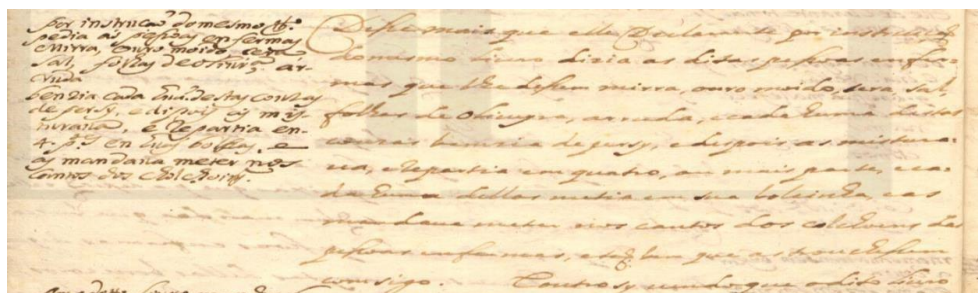 por instruçaõ do mesmo Lº.
pedia as pessoas enfermas
Mirra, ouro moido, cera
sal, folhas de oliurª, ar-
ruda
bendia cada hũa destas cousas
de per sy, e dipois as mis
turaua, e repartia en
4. p.tes en suas bolsas, e
as mandaua meter nos
cantos dos colchoins.
Disse mais que elle Declarante por instrucçaõ
do mesmo liuro dizia as ditas pessoas enfer-
mas que lhe dessem mirra, ouro moido, cera, sal,
folhas de Oliueyra, arruda, e cada huma dessas
couzas benzia de persy, e despois, as mistura-
ua, e repartia em quatro, ou mais partes, e ca-
da huma dellas metia em sua bolsinha, e as
mandaua meter nos cantos dos colchoens das
pessoas enfermas, e tambem que as trouxessem
comsigo. E outro sy uendo que o dito liuro